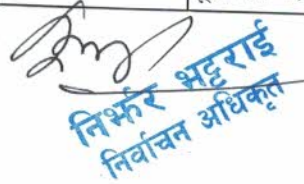 निर्झर भट्टराई
निर्वाचन अधिकृत